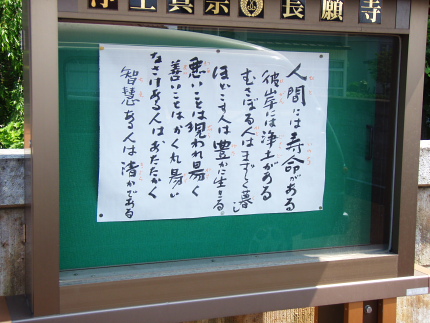 浄土真宗 長願寺
人間には寿命がある
彼岸には浄土がある
むさぼる人はまずしく暮し
ほどこす人は豊かに生きる
悪いことは現われ易く
善いことはかくれ易い
なさけある人はあたたかく
智慧ある人は清かである